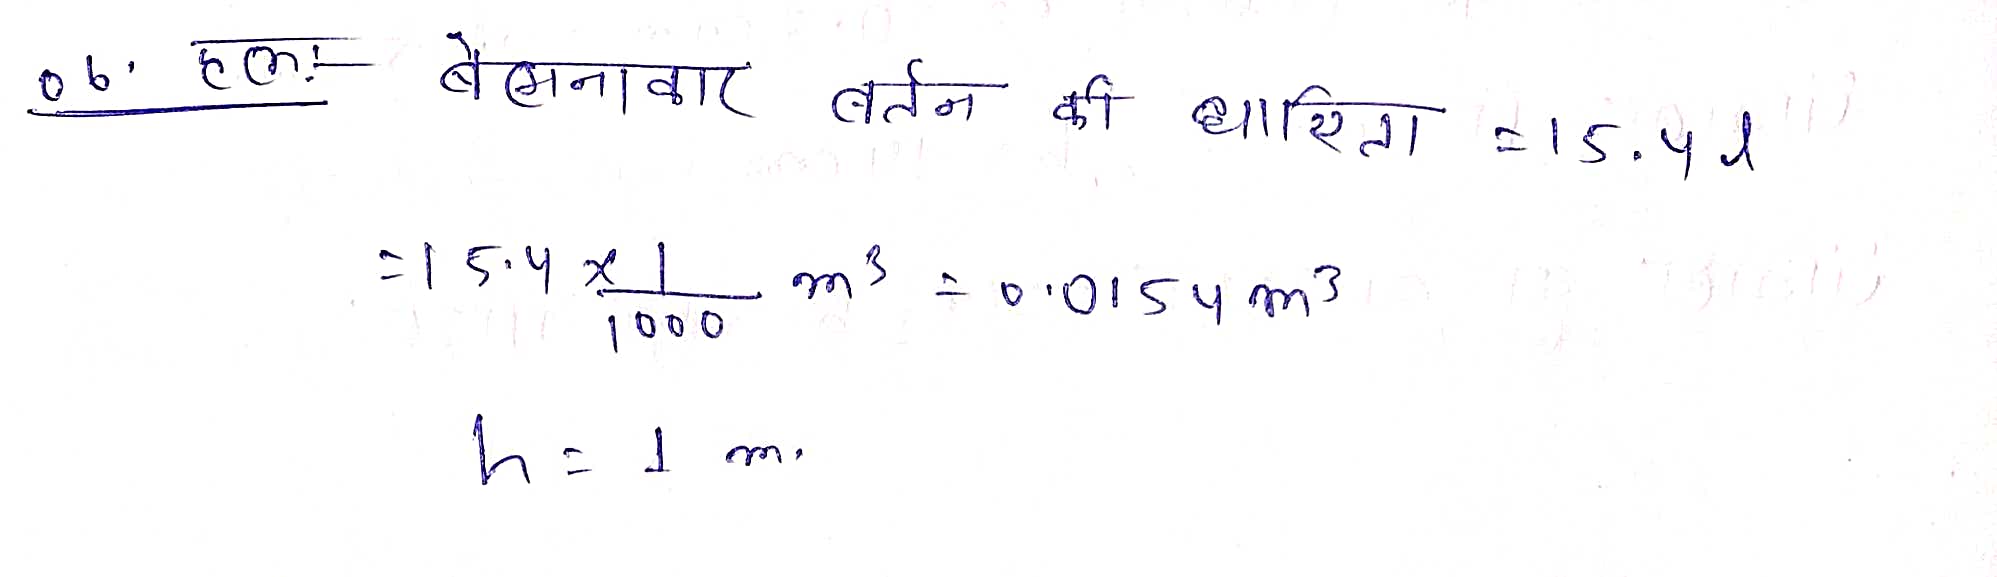 06. हल:- बेलनाकार बर्तन की धारिता = 15.4 l
= 15.4 x 1/1000 m³ = 0.0154 m³
h = 1 m.